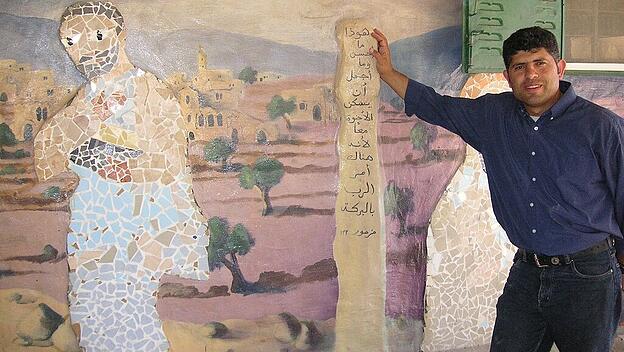 هوذا
ما
احسن
وما
اجمل
أن
يسكن
الأخوة
معاً
لأنه
هناك
أمر
الرب
بالبركة
مزمور ١٣٣